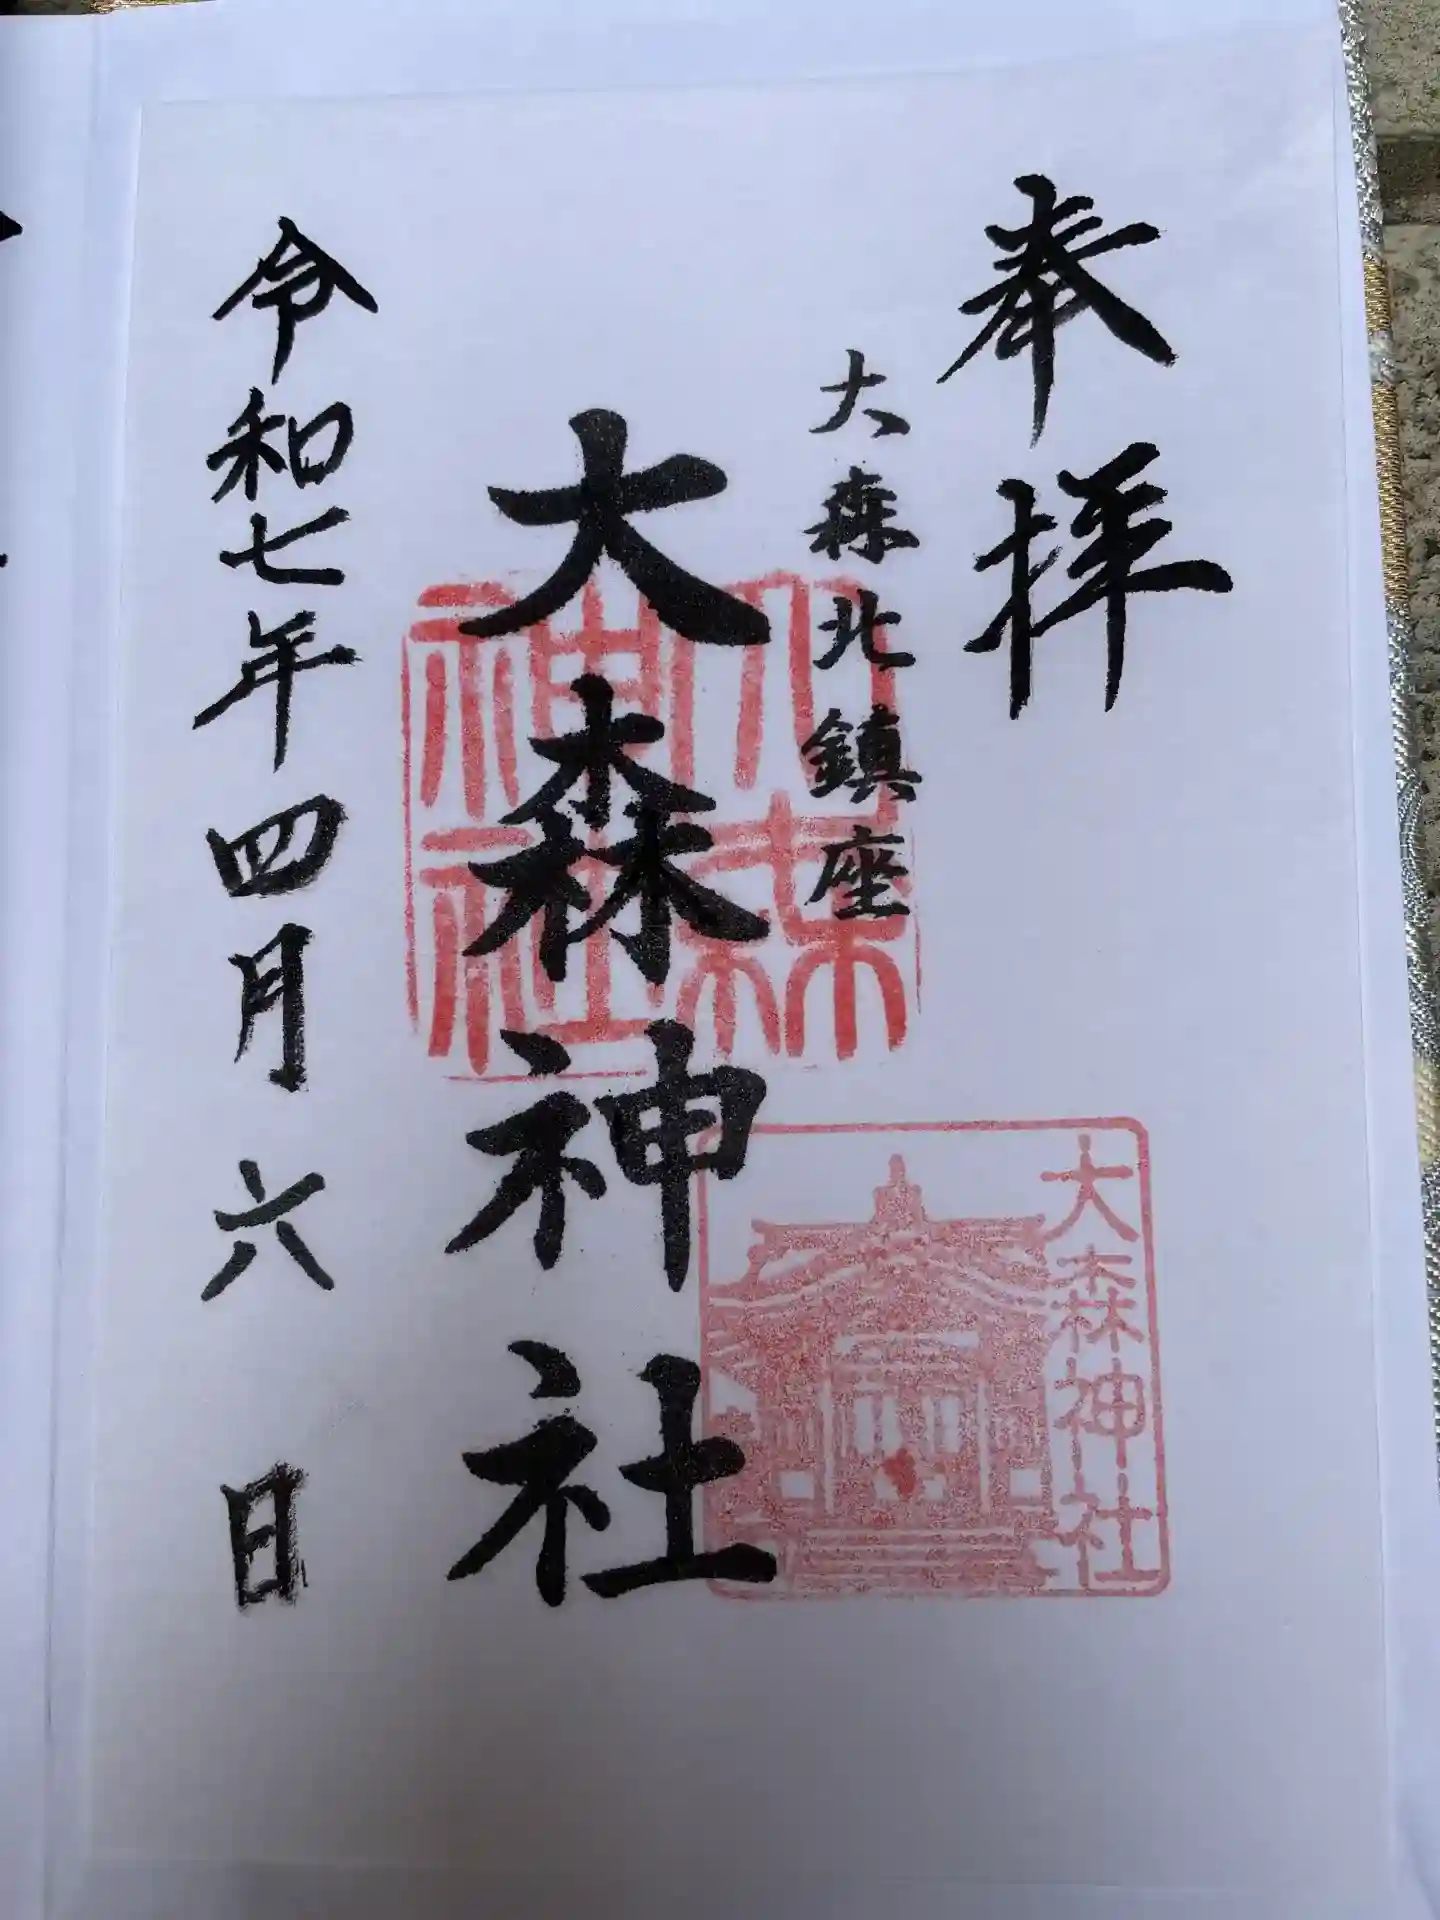 奉拝
大森北鎮座
大森神社
令和七年四月六日
大森神社
大森神社